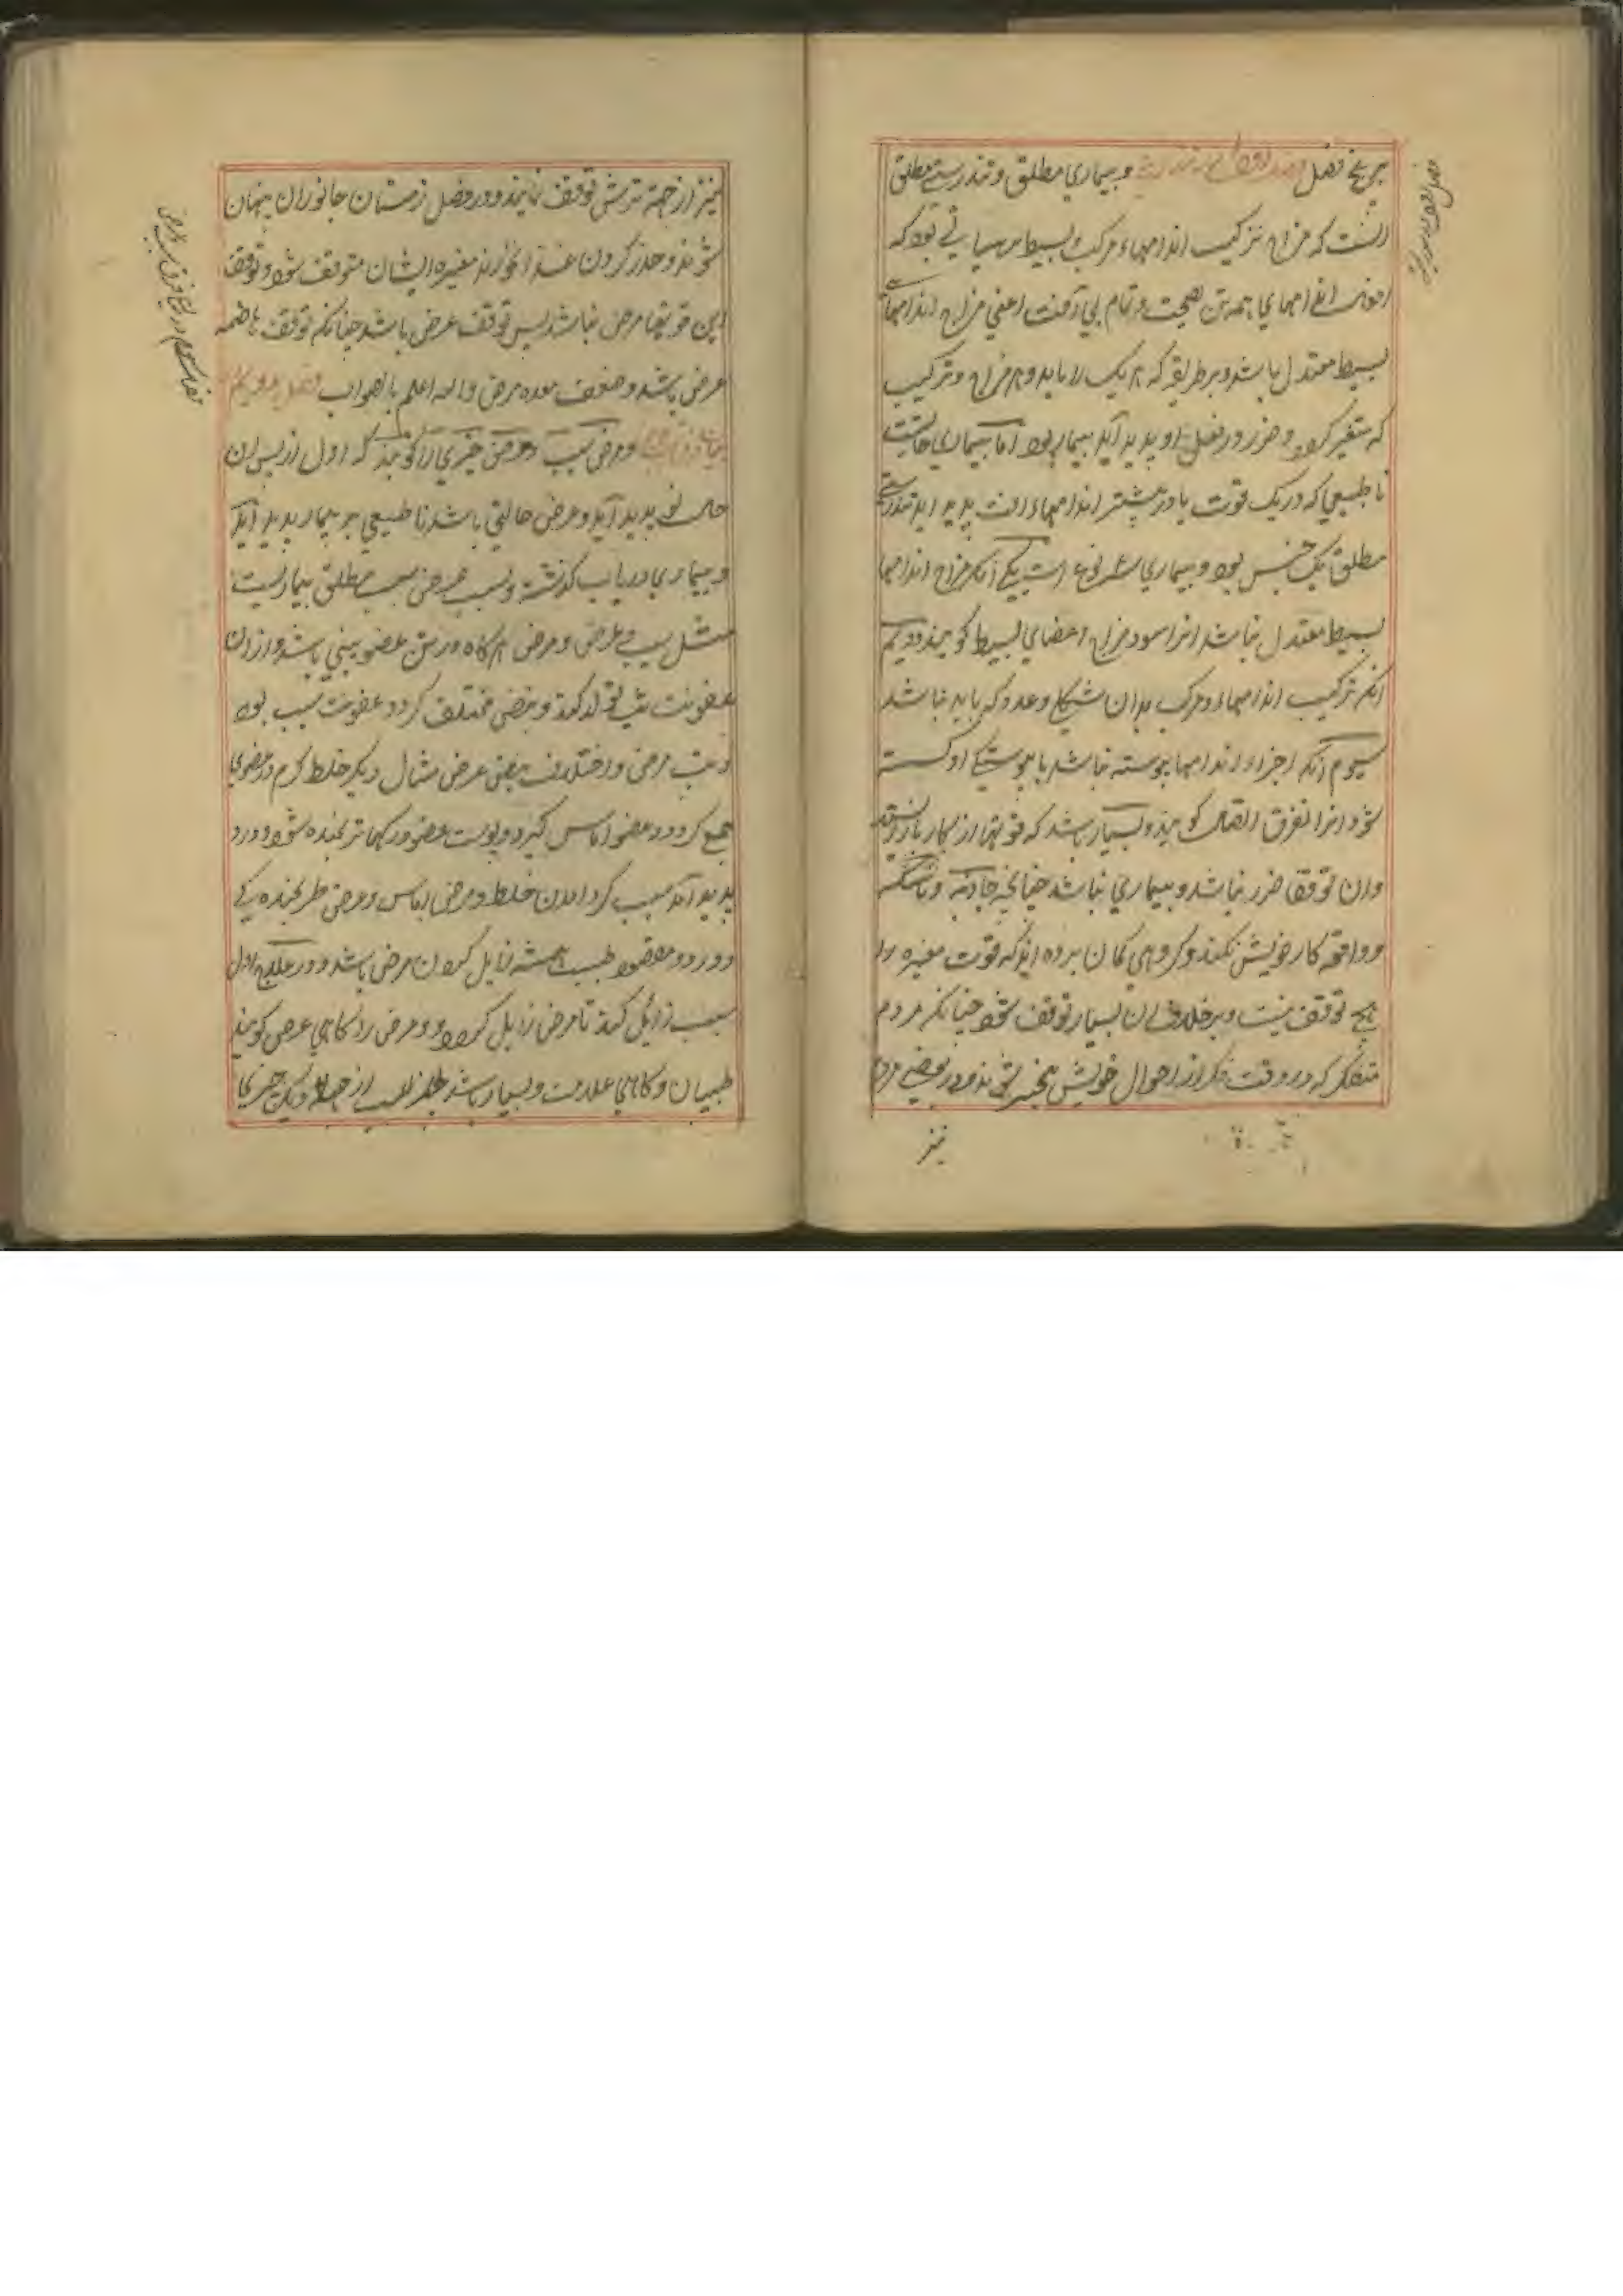 بر پنج فصل و بیماری مطلق و تندرستی مطلق
انست که مزاج ترکیب اندامهاء مرکب و بسیط بر هیاتی بود که
اندامهای همه تن بصحت و تمام بی آفت اعنی مزاج اندامهاء
بسیط معتدل باشد و بر طریقه که هر یک را باید و هر مزاج و ترکیب
که متغیر کردد و ضرر در فعل او پدید آید بیمار بود اما بیماری حالیست
نا طبیعی که در یک قوت یا در بیشتر اندامهاء افت پدید اید تندرستی
مطلق یک جنس بود و بیماری سه نوع است یکی آنکه مزاج اندامها
بسیط معتدل نباشد انرا سود مزاج اعضای بسیط کویند دویم
انکه ترکیب اندامهاء مرکب بدان شکل و عدد که باید نباشد
سیوم آنکه اجزاء اندامها پوسته نباشد یا پوستکی او کسسته
شود انرا تفرق اتصال کویند و بسیار باشد که قوتها از کار باز ایستد
وان توقف ضرر نباشد و بیماری نباشد چنانچه جاذبه و ماسکه
و دافعه کار خویش نکنند و کروهی کمان برده اند که قوت مغیره را
هیچ توقف نیست و بر خلاف ان بسیار توقف شود چنانکه مردم
متفکر که در وقت فکر از احوال خویش بیخبر شوند و در بعضی مردم
نیز
نیز از جهة ترشی توقف نمایند و در فصل زمستان جانوران پنهان
شوند و حذر کردن غذا نخورند مغیره ایشان متوقف شود و توقف
این قوتها مرض نباشد پس توقف عرض باشد چنانکه توقف هاضمه
عرض باشد و ضعف معده مرض و الله اعلم بالصواب
و مرض سبب و عرض چیزی را کویند که اول از پس ان
حالت نو پدید آید و مرض حالتی باشد نا طبیعی بر بیمار پدید آید
و بیماری دریاب کذشته و سبب مرض سبب مطلق بیماریست
مثل سبب و عرض و مرض هرکاه در تن عضو بینی باشد و ازان
عفونت تب تولد کند و نبض مختلف کردد عفونت سبب بود
و تب مرض و اختلاف نبض عرض مثال دیکر خلط کرم در عضوی
جمع کردد و عضو اماس کیرد و پوست عضو و رکها ترنجیده شود و درد
پدید آید سبب کرد امدن خلط و مرض اماس و عرض ترنجیده رکی
و درد و مقصود طبیب همیشه زایل کردن مرض باشد و در علاج اول
سبب زائل کند تا مرض زایل کردد و مرض را کاهی عرض کویند
طبیبان و کاهی علامت و بسیار باشد